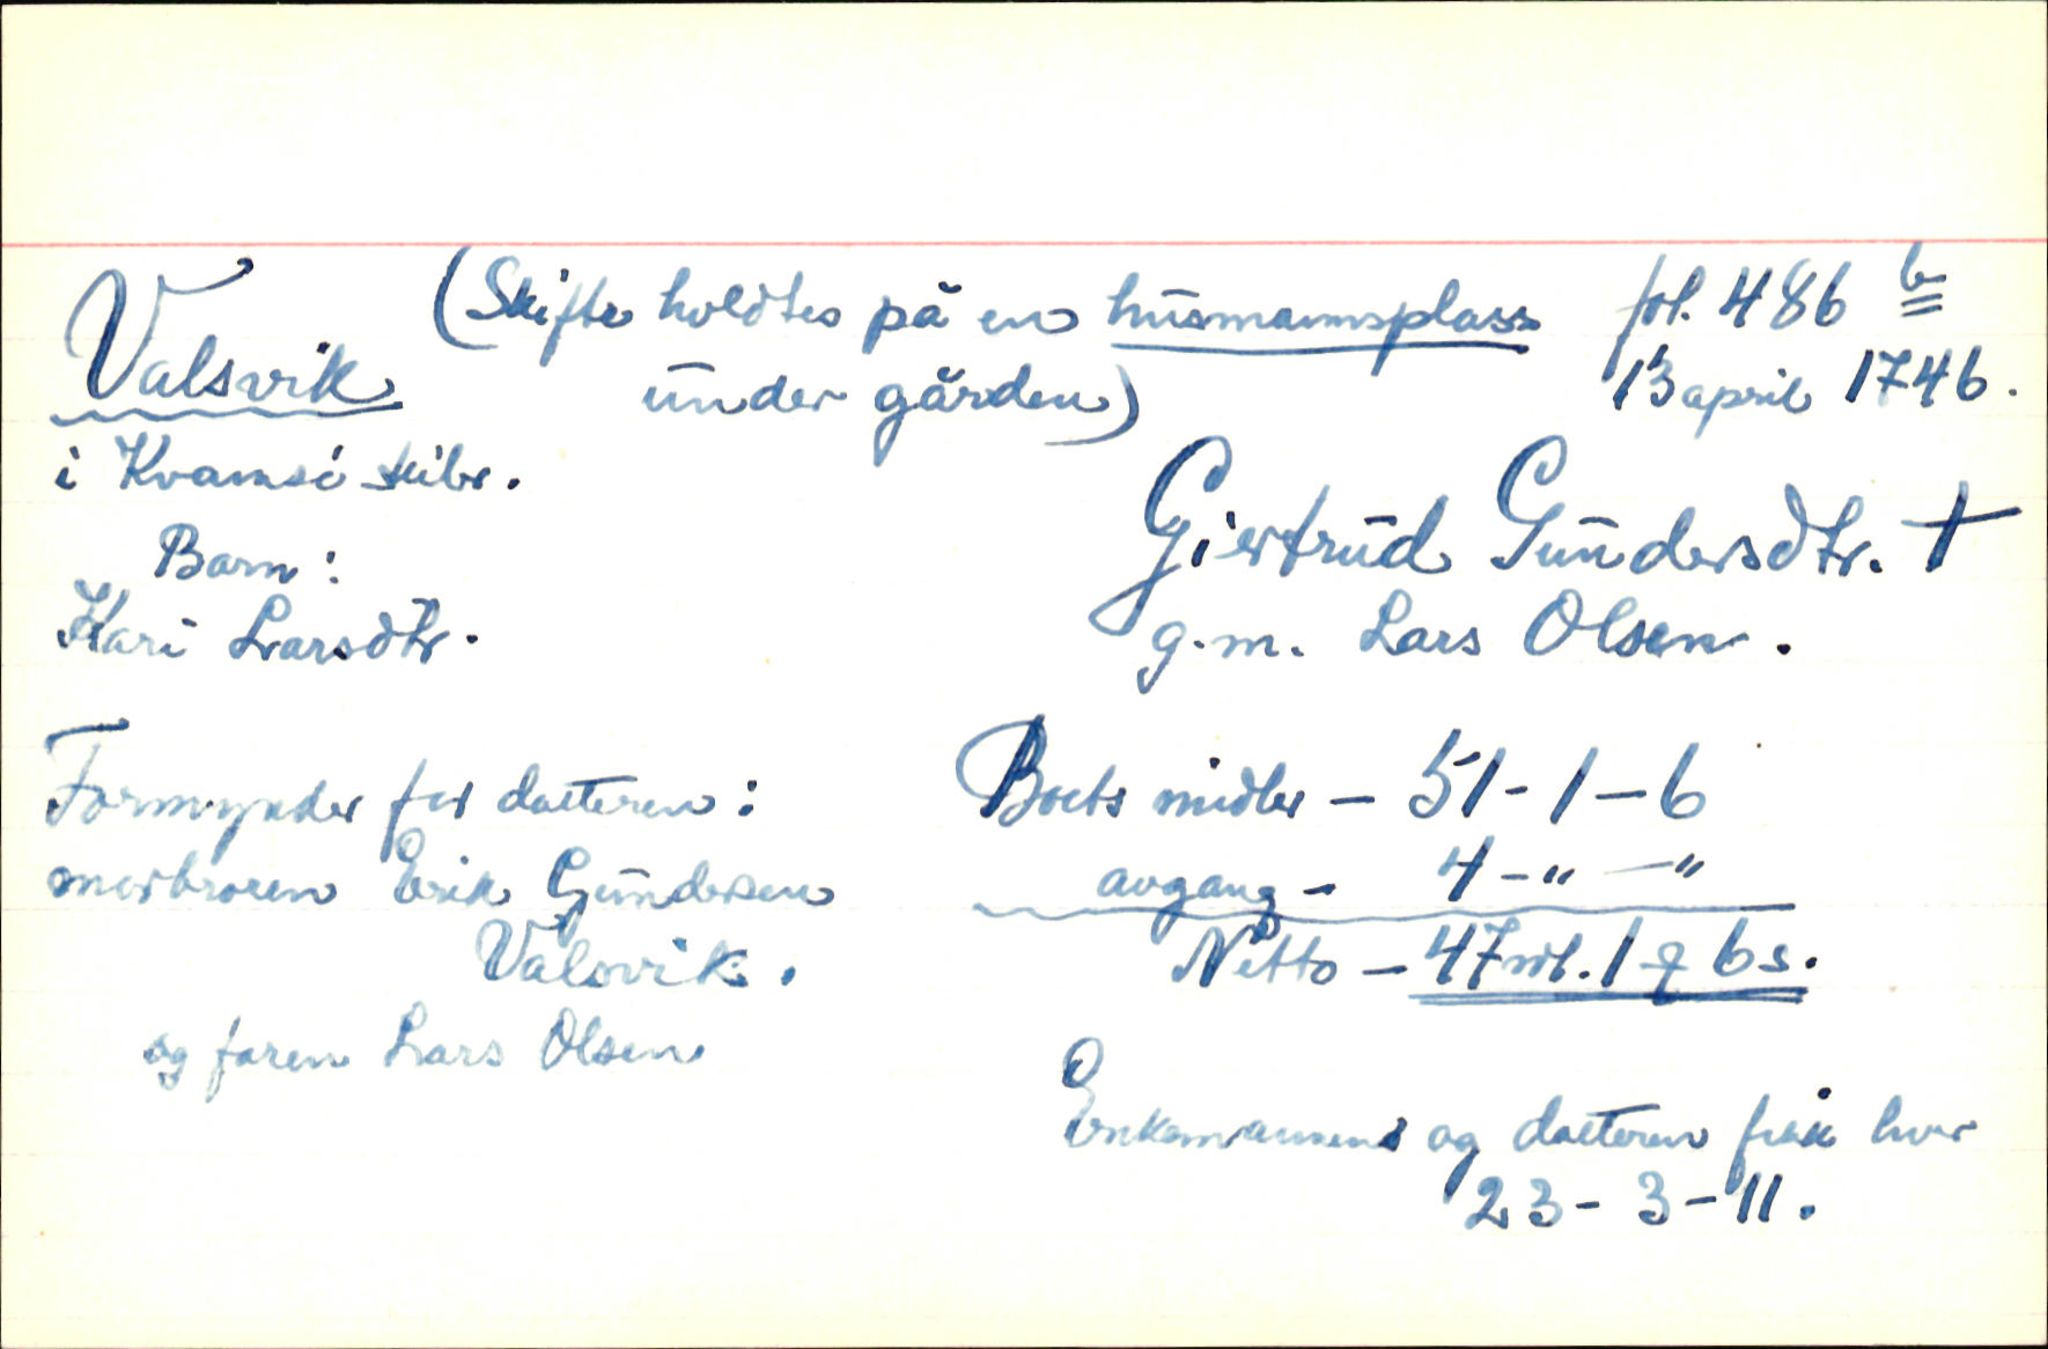 Valsvik (Skifte holdtes på en husmannsplass fol. 486 b
under gården) 13 april 1746.
i Kvamsøi skibr.
Gjertrud Gundersdtr. †
g.m. Lars Olsen.
Barn:
Kari Larsdtr.
Formynder for datteren:
morbroren Erik Gundersen
Valsvik.
og faren Lars Olsen
Boets midler – 51-1-6
avgang – 4-"-"
Netto – 47 rdl. 1 ꝗ 6 s.
Enkemannen og datteren fikk hver
23-3-11.